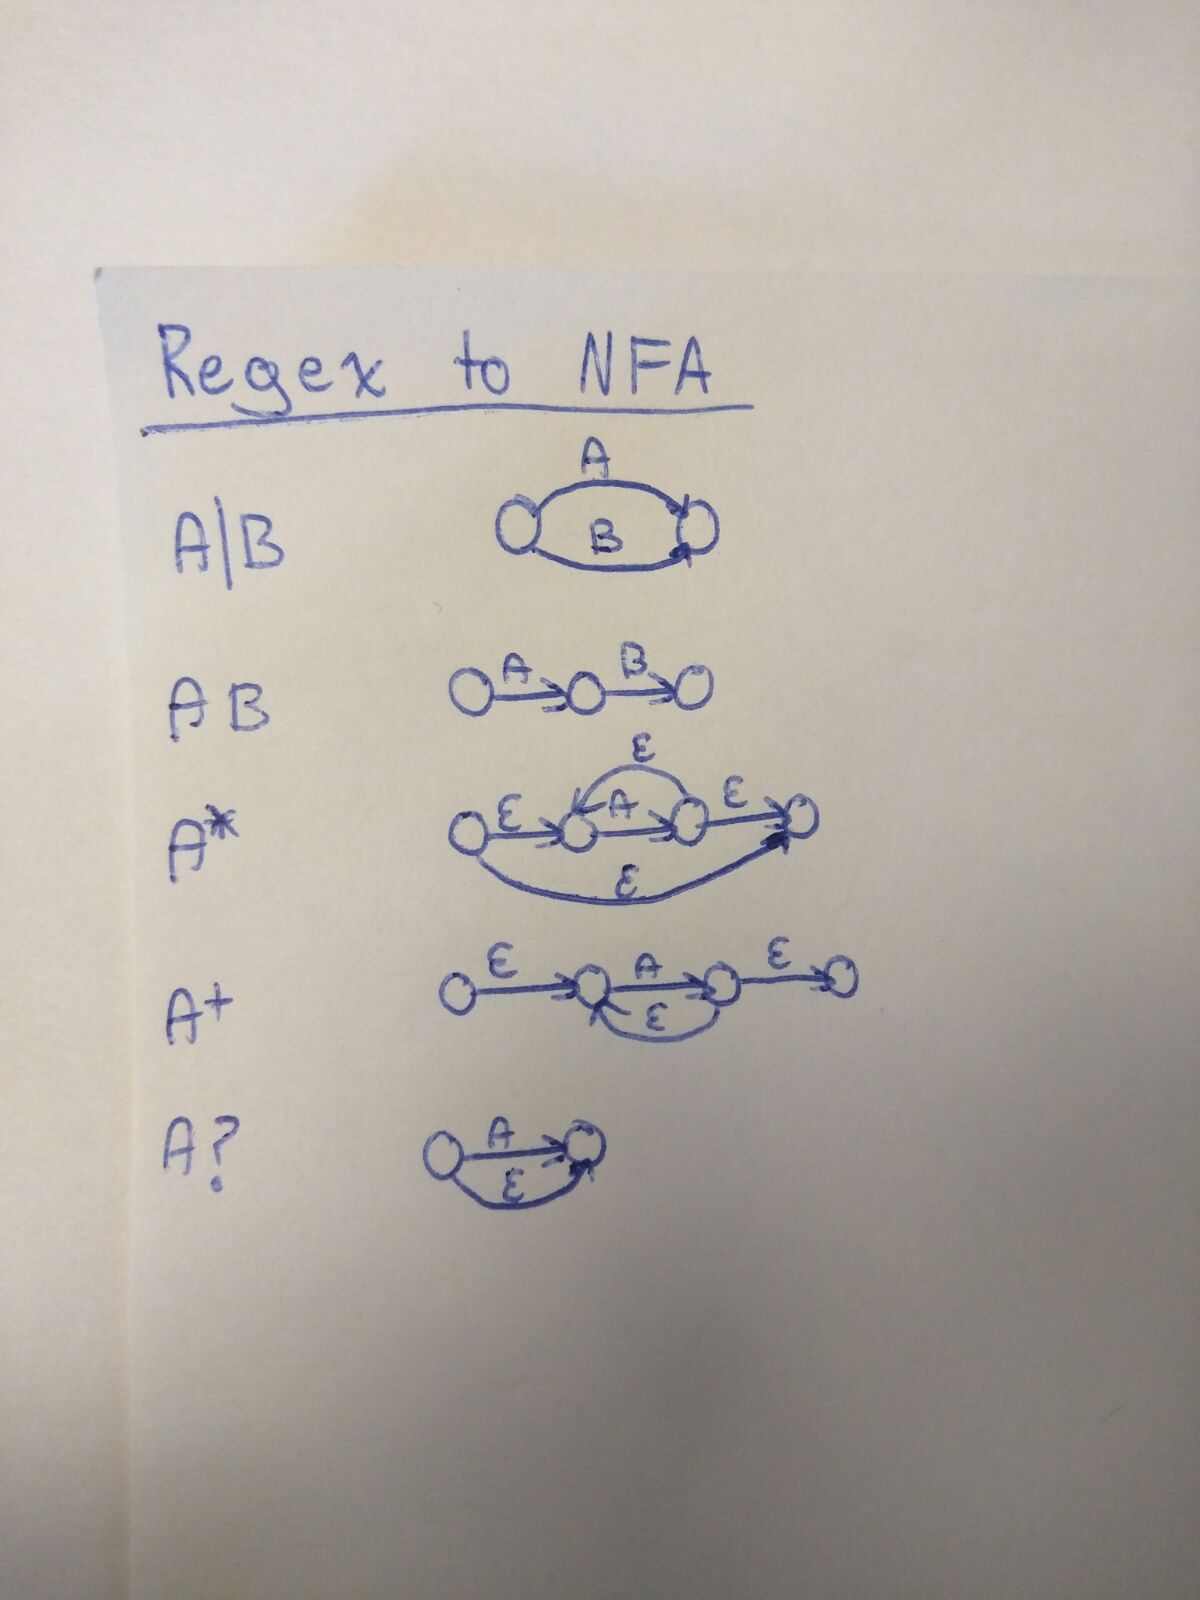 Regex to NFA
A
A|B
B
A B
A B
ε
A*
ε A ε
ε
ε A ε
A+
ε
A?
A
ε